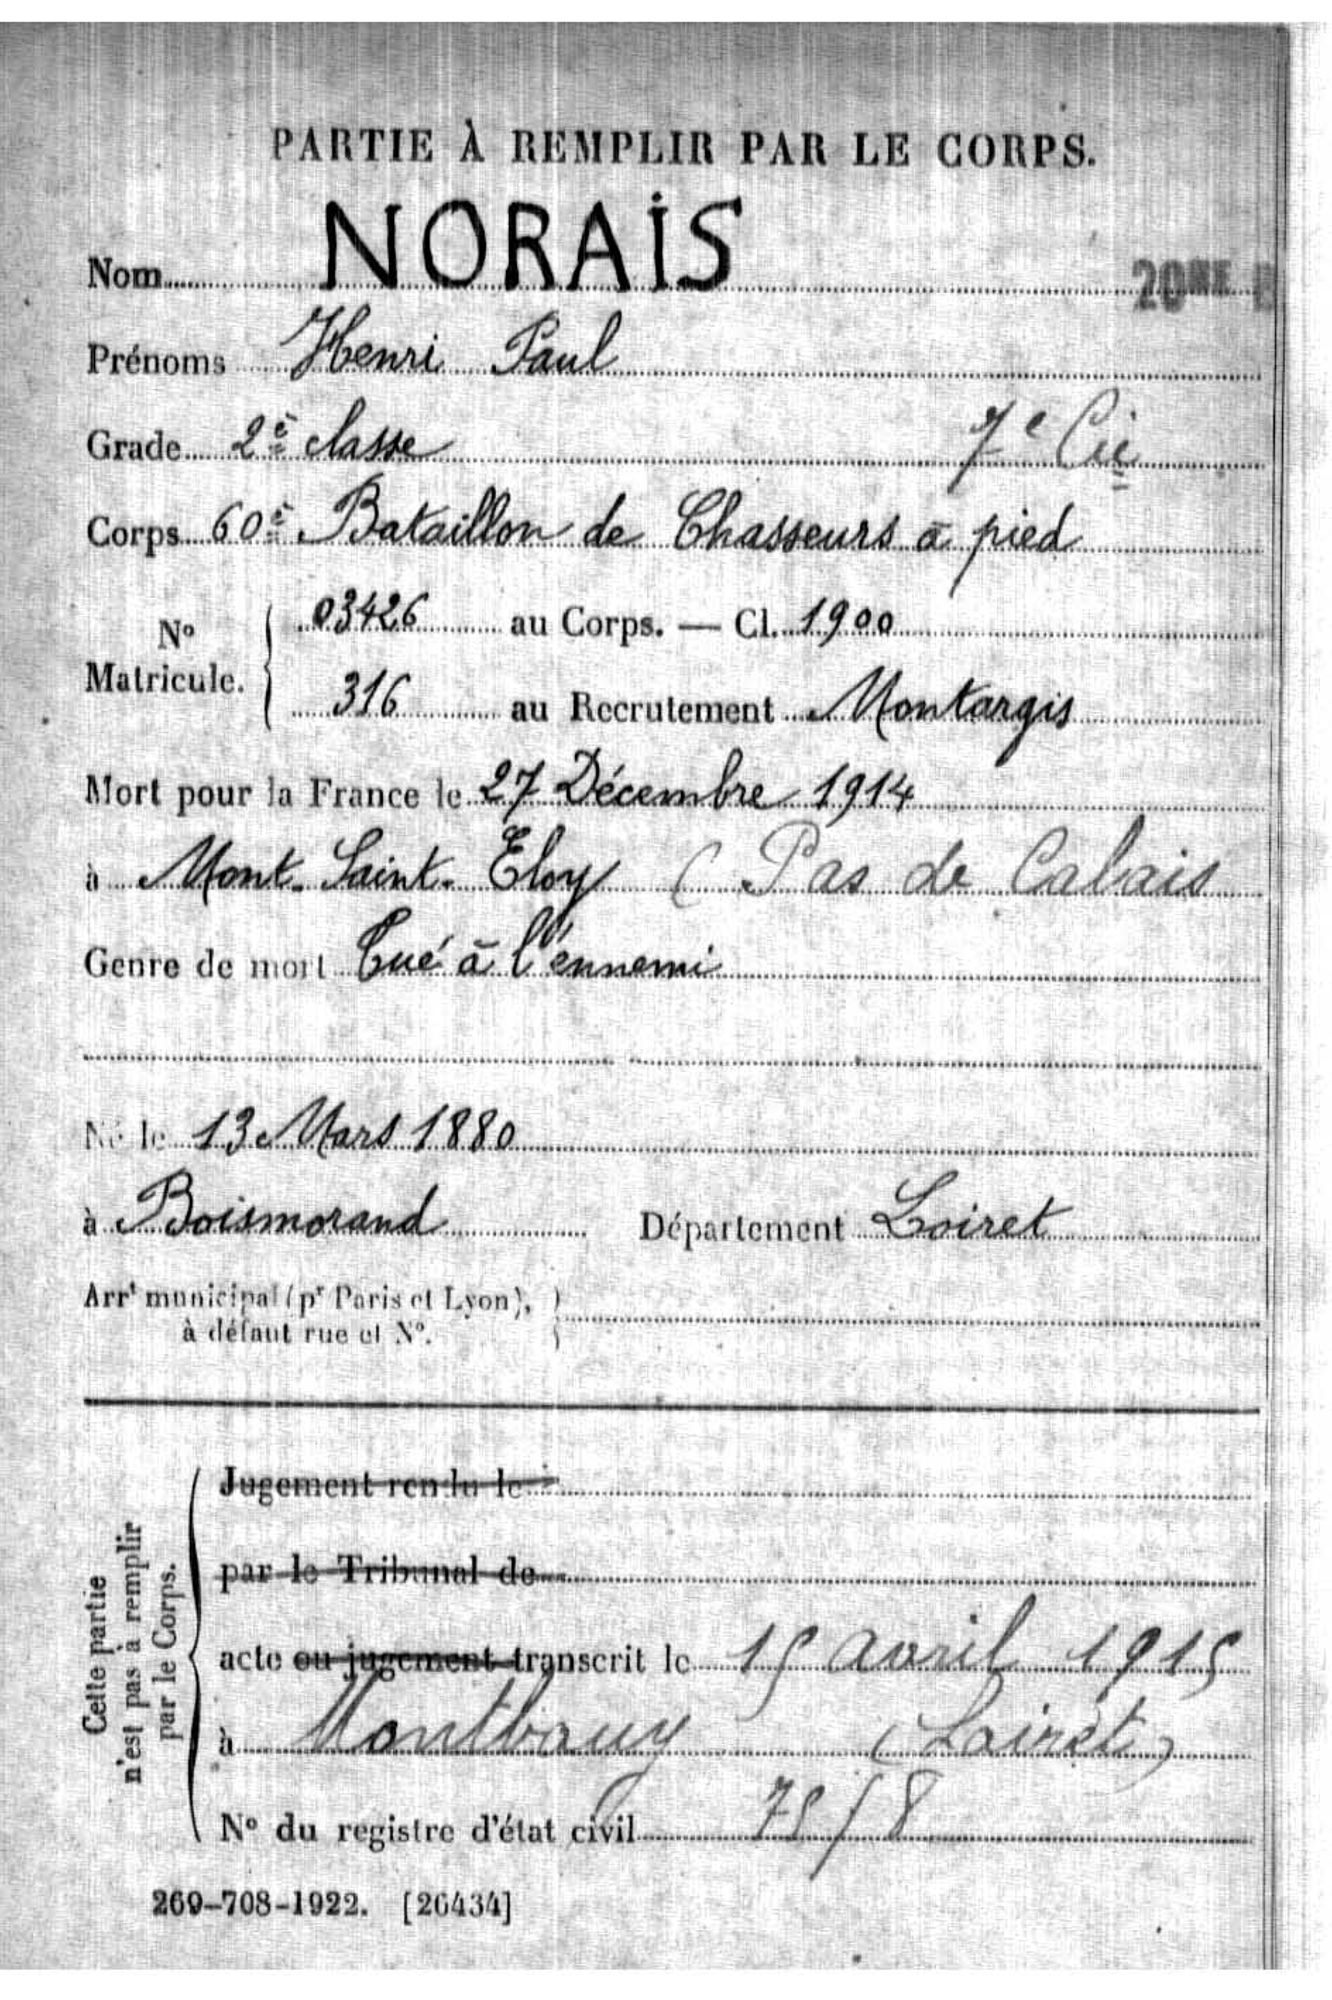 PARTIE À REMPLIR PAR LE CORPS.
Nom NORAIS
20ME
Prénoms Henri Paul
Grade 2e classe 7e Cie
Corps 60e Bataillon de Chasseurs à pied
No Matricule.
03426 au Corps. — Cl. 1900
316 au Recrutement Montargis
Mort pour la France le 27 Décembre 1914
à Mont-Saint-Eloy ( Pas de Calais
Genre de mort Tué à l'ennemi
Né le 13 Mars 1880
à Boismorand Département Loiret
Arrt municipal (pr Paris et Lyon),
à défaut rue et No.
Cette partie
n'est pas à remplir
par le Corps.
Jugement rendu le
par le Tribunal de
acte ou jugement transcrit le 15 avril 1915
à Montbouy (Loiret)
No du registre d'état civil 75/8
269-708-1922. [26434]